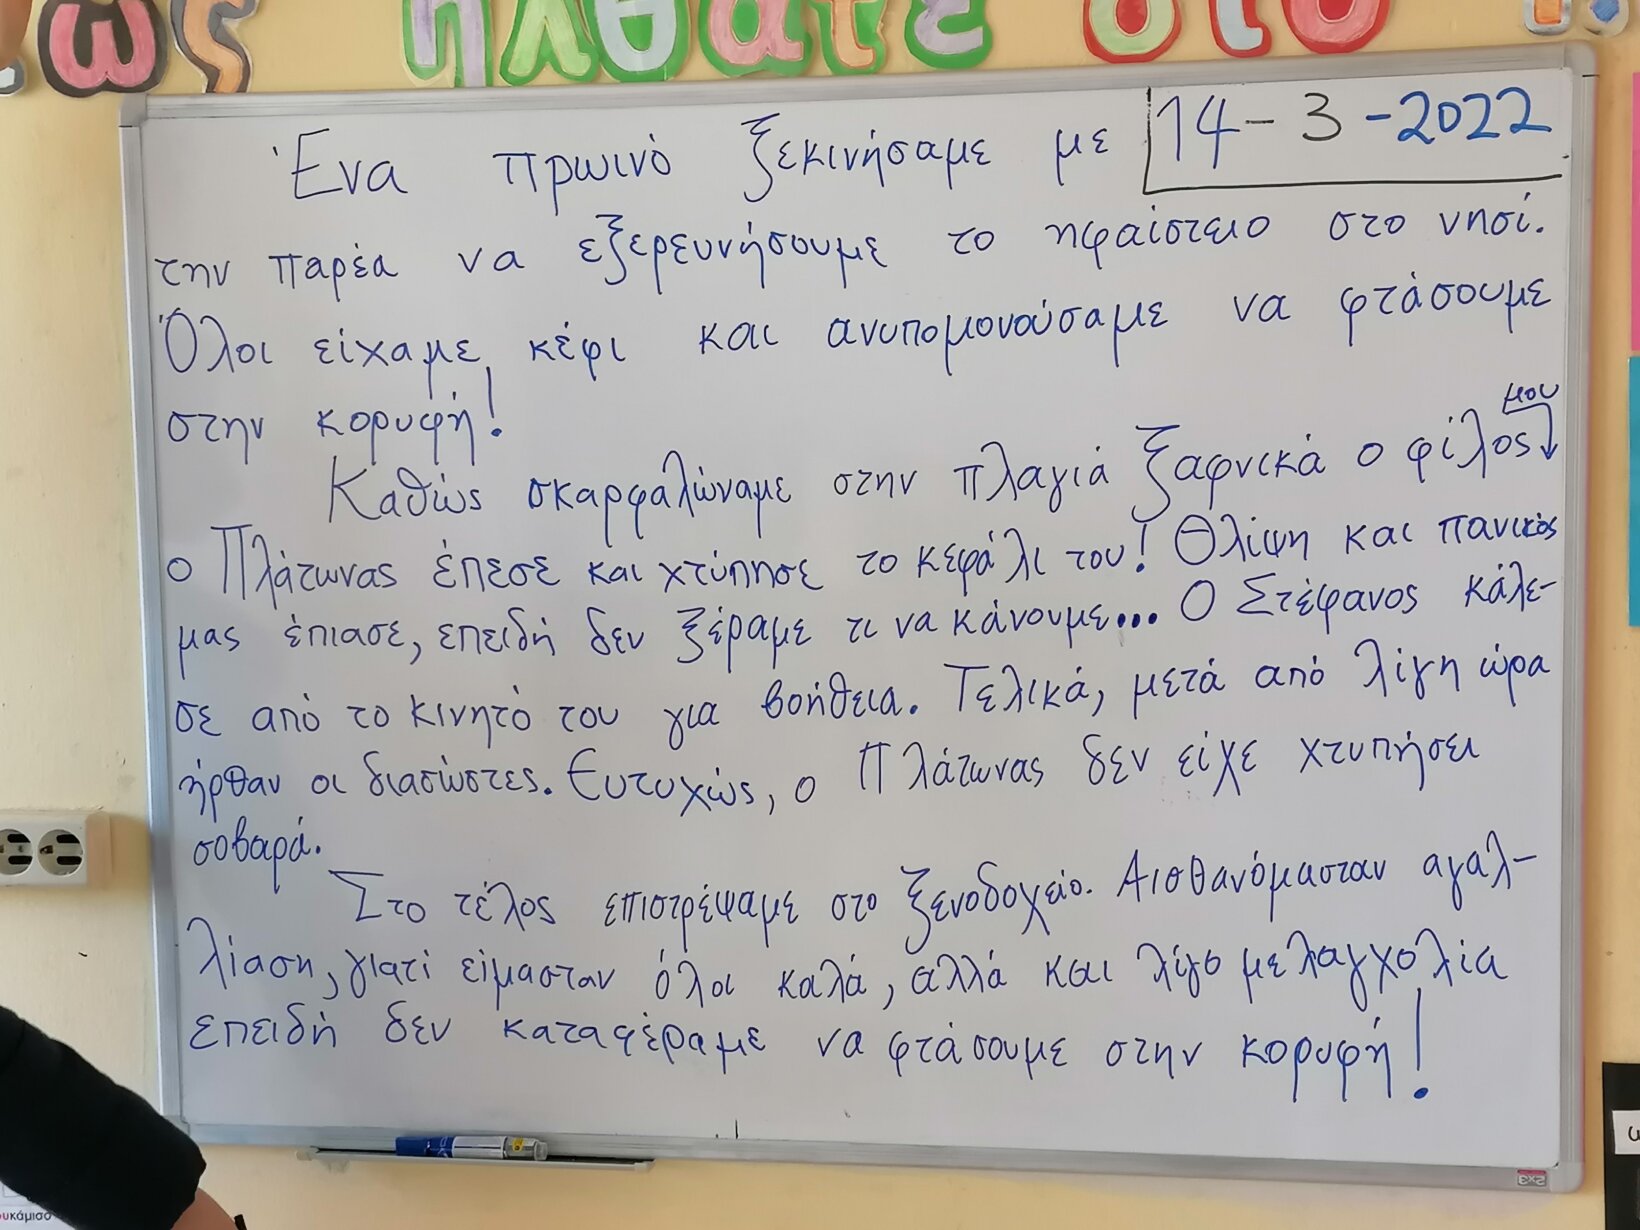 ως ήλθατε στο
14-3-2022
Ένα πρωινό ξεκινήσαμε με
την παρέα να εξερευνήσουμε το ηφαίστειο στο νησί.
Όλοι είχαμε κέφι και ανυπομονούσαμε να φτάσουμε
στην κορυφή!
μου
Καθώς σκαρφαλώναμε στην πλαγιά ξαφνικά ο φίλος
ο Πλάτωνας έπεσε και χτύπησε το κεφάλι του! Θλίψη και πανικός
μας έπιασε, επειδή δεν ξέραμε τι να κάνουμε... Ο Στέφανος κάλε-
σε από το κινητό του για βοήθεια. Τελικά, μετά από λίγη ώρα
ήρθαν οι διασώστες. Ευτυχώς, ο Πλάτωνας δεν είχε χτυπήσει
σοβαρά.
Στο τέλος επιστρέψαμε στο ξενοδοχείο. Αισθανόμασταν αγαλ-
λίαση, γιατί είμασταν όλοι καλά, αλλά και λίγο μελαγχολία
επειδή δεν καταφέραμε να φτάσουμε στην κορυφή!
ουκάμισο